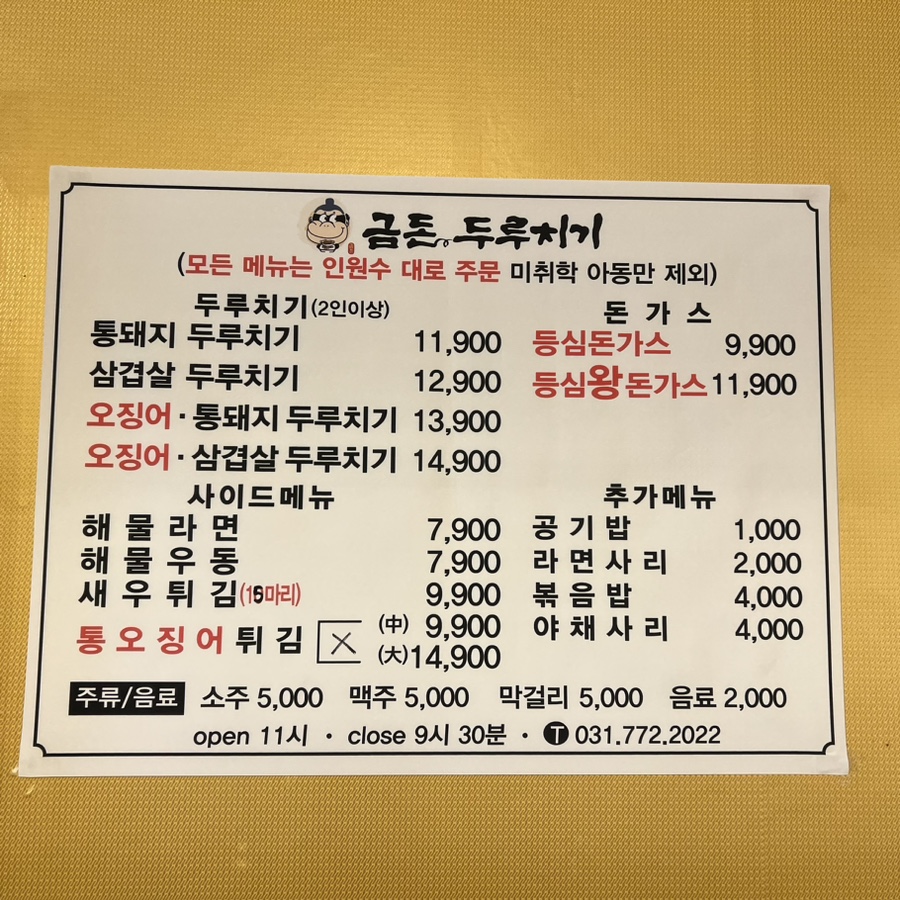 금돈 두루치기
(모든 메뉴는 인원수 대로 주문 미취학 아동만 제외)
두루치기(2인이상)
통돼지 두루치기 11,900
삼겹살 두루치기 12,900
오징어·통돼지 두루치기 13,900
오징어·삼겹살 두루치기 14,900
돈가스
등심돈가스 9,900
등심왕돈가스 11,900
사이드메뉴
해물라면 7,900
해물우동 7,900
새우튀김(마리) 9,900
통오징어튀김 (中) 9,900
(大) 14,900
추가메뉴
공기밥 1,000
라면사리 2,000
볶음밥 4,000
야채사리 4,000
주류/음료 소주 5,000 맥주 5,000 막걸리 5,000 음료 2,000
open 11시 · close 9시 30분 · T 031.772.2022